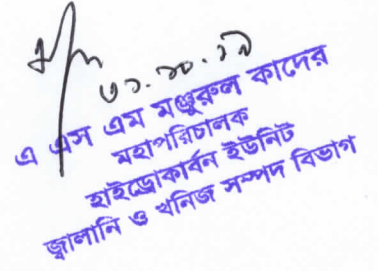 ৩১.১০.১৯
এ এস এম মঞ্জুরুল কাদের
মহাপরিচালক
হাইড্রোকার্বন ইউনিট
জ্বালানি ও খনিজ সম্পদ বিভাগ